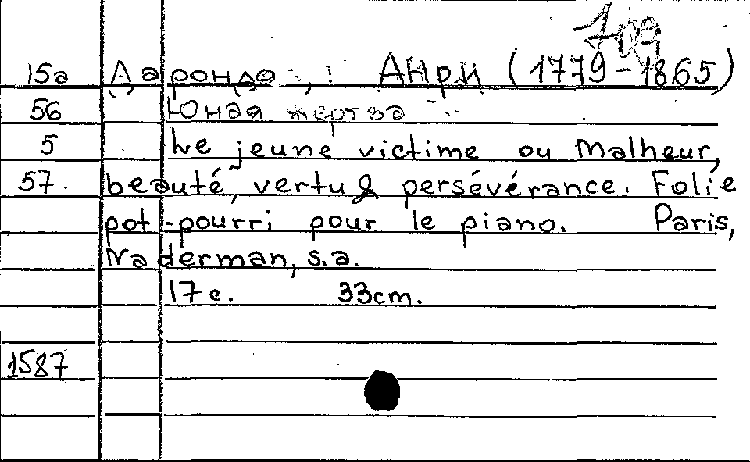 709
15а Дарондо, Анри (1779-1865)
56 Юная жертва
5 Le jeune victime ou Malheur,
57. beauté, vertu & persévérance. Folie
pot-pourri pour le piano. Paris,
Naderman, s.a.
17 c. 33cm.
1587